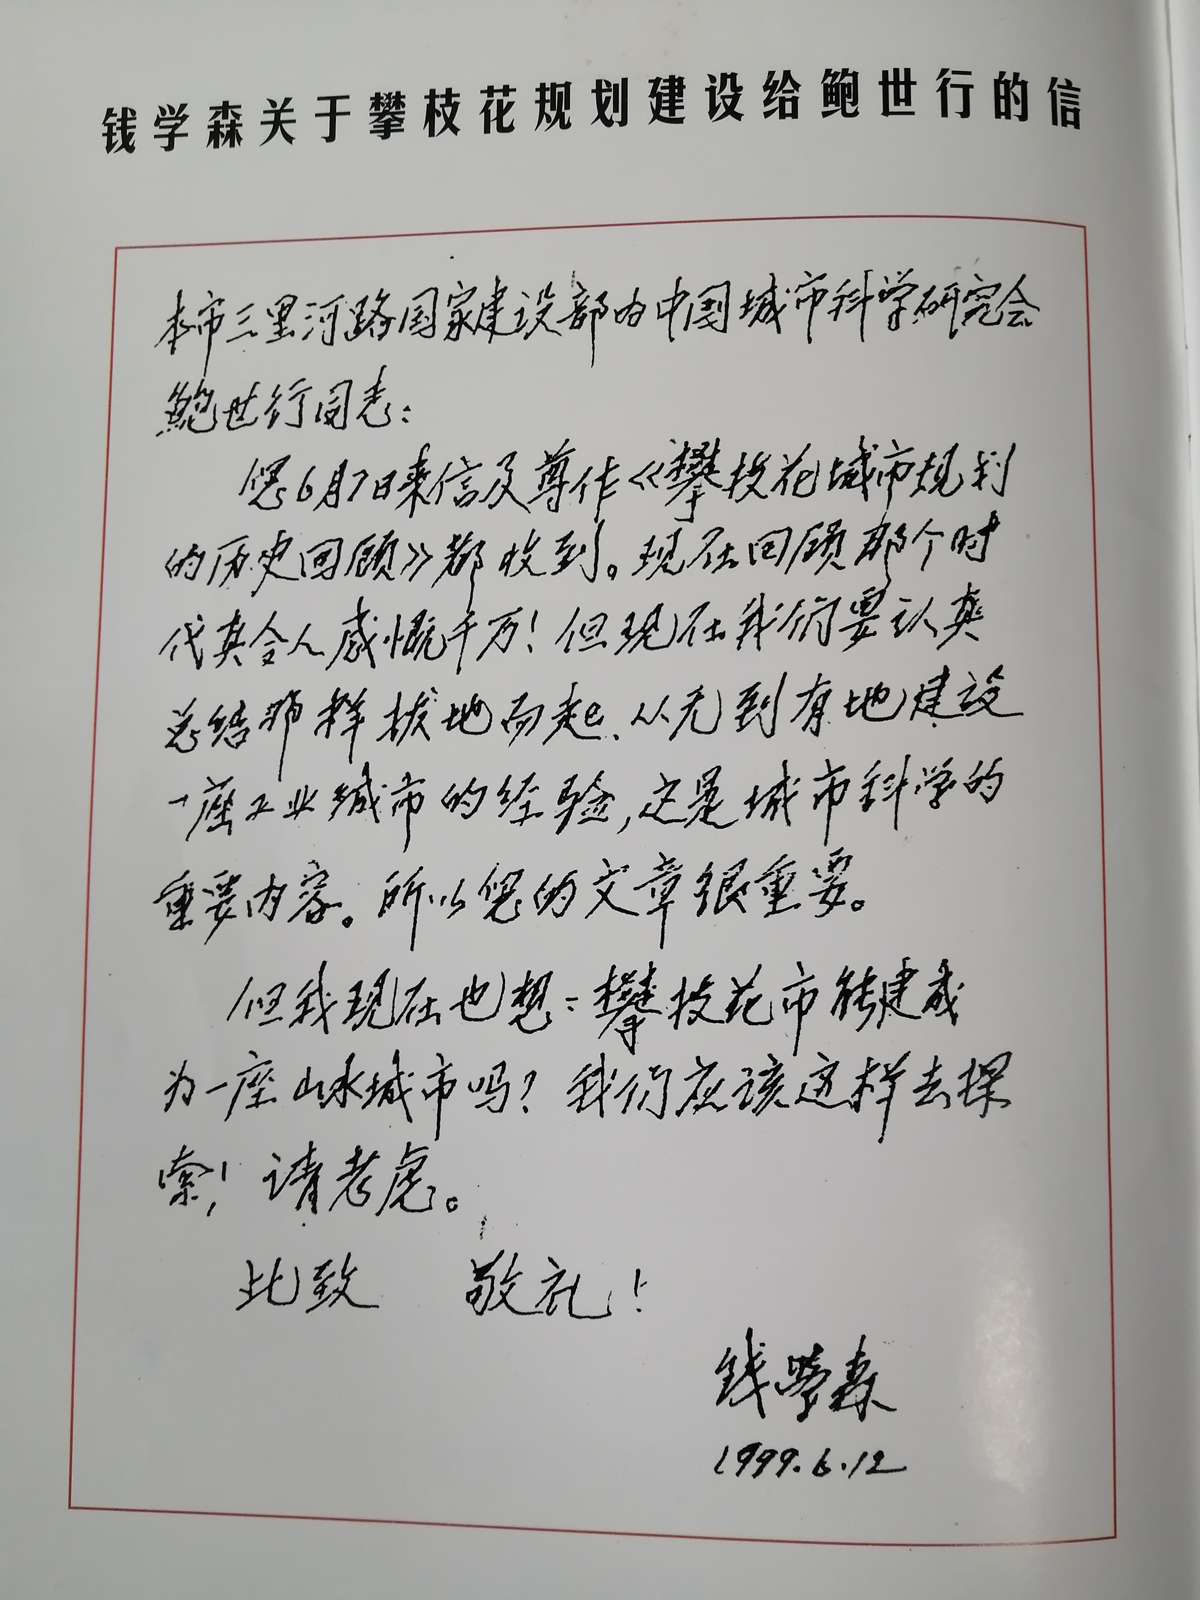 钱学森关于攀枝花规划建设给鲍世行的信
本市三里河路国家建设部内中国城市科学研究会
鲍世行同志：
您6月7日来信及尊作《攀枝花城市规划
的历史回顾》都收到。现在回顾那个时
代真令人感慨千万！但现在我们要认真
总结那样拔地而起、从无到有地建设
一座工业城市的经验，这是城市科学的
重要内容。所以您的文章很重要。
但我现在也想：攀枝花市能建成
为一座山水城市吗？我们应该这样去探
索！请考虑。
此致 敬礼！
钱学森
1999.6.12